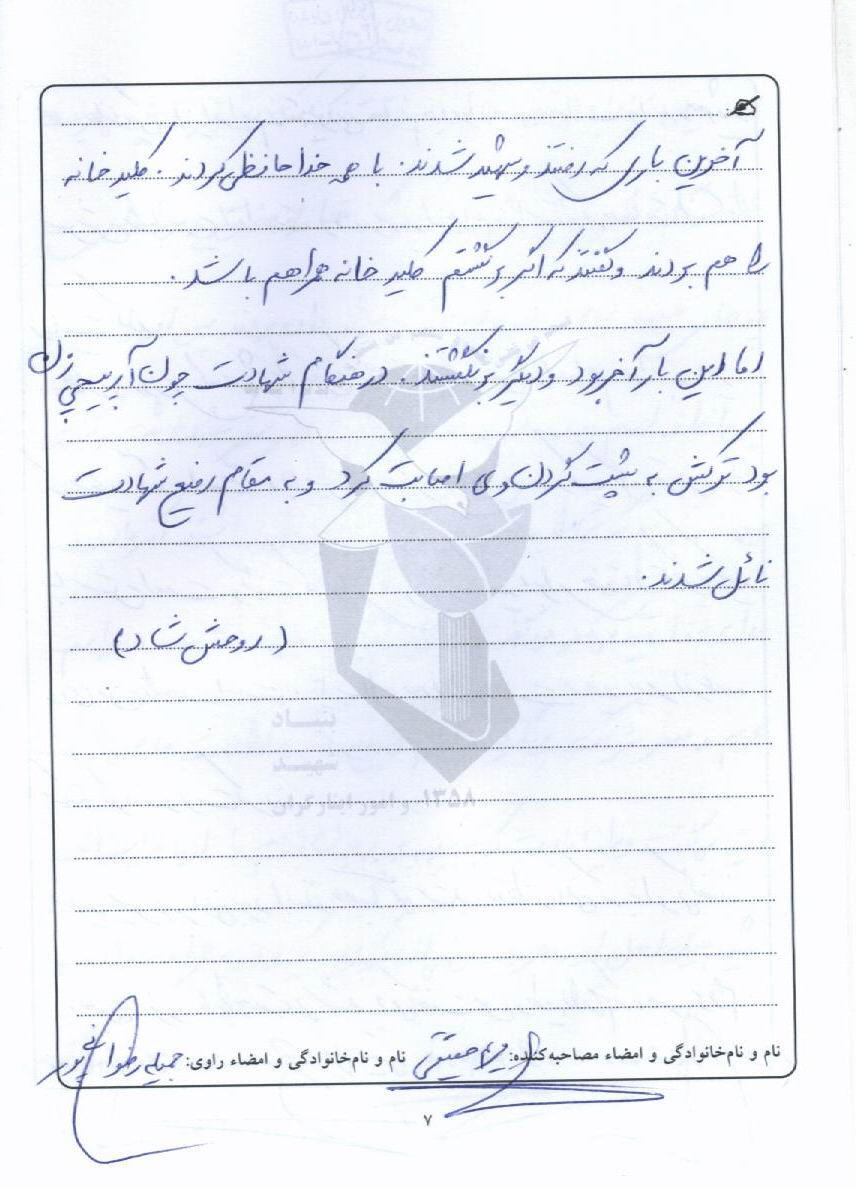 آخرین باری که رفتند و شهید شدند. با همه خداحافظی کردند. کلید خانه
را هم بردند و گفتند که اگر برگشتم کلید خانه همراهم باشد.
اما این بار آخر بود و دیگر برنگشتند. در هنگام شهادت چون آرپیجی زن
بود ترکش به پشت گردن وی اصابت کرد و به مقام رفیع شهادت
نائل شدند.
(روحش شاد)
بنیاد
شهید
۱۳۵۸ و امور ایثارگران
نام و نام‌خانوادگی و امضاء مصاحبه‌کننده: حقیقی نام و نام‌خانوادگی و امضاء راوی: جمیله رضوانی پور
۷